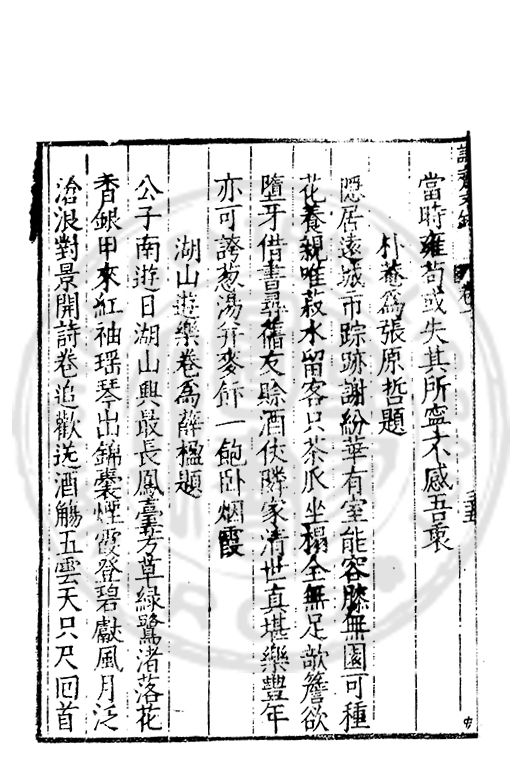 當時雍茍或失其所寧不感吾衷
朴菴爲張原哲題
隱居遠城市踪跡謝紛華有室能容膝無園可種
花養親唯菽水留客只茶瓜坐榻全無足敝簷欲
墮牙借書尋舊友賒酒使隣家清世真堪樂豐年
亦可誇葱湯幷麥飰一飽卧烟霞
湖山遊樂卷爲薛楹題
公子南遊日湖山興最長鳳臺芳草綠鷺渚落花
香銀甲來紅袖瑶琴出錦囊煙霞登碧巘風月泛
滄浪對景開詩卷追歡送酒觴五雲天只尺回首